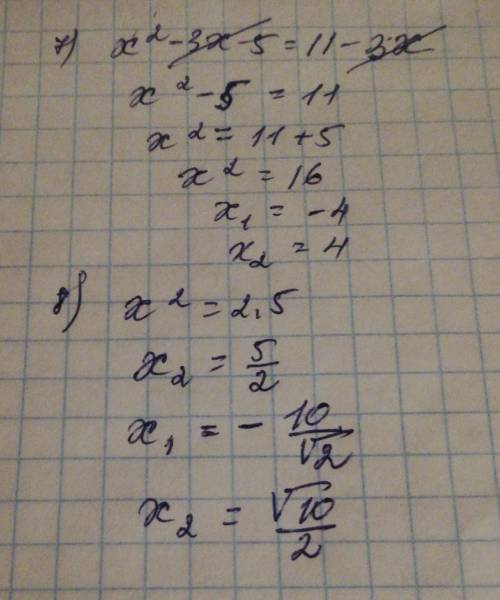 7) x² - 3x - 5 = 11 - 3x
x² - 5 = 11
x² = 11 + 5
x² = 16
x₁ = -4
x₂ = 4
8) x² = 2,5
x₂ = 5/2
x₁ = - 10/√2
x₂ = √10/2